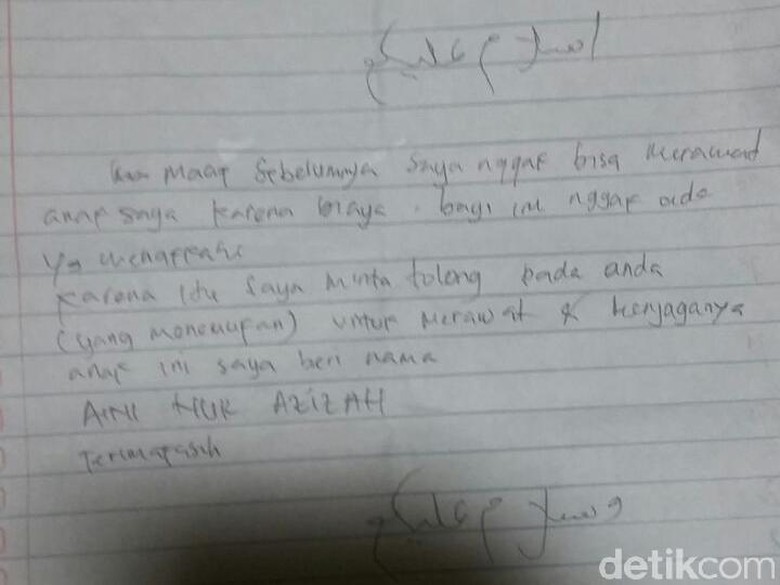 السلام عليكم
Maaf sebelumnya saya nggak bisa merawat
anak saya karena biaya. bayi ini nggak ada
yg
karena itu saya minta tolong pada anda
(yang menemukan) untuk merawat & menjaganya
anak ini saya beri nama
AINI NUR AZIZAH
Terimakasih
والسلام عليكم
detikcom